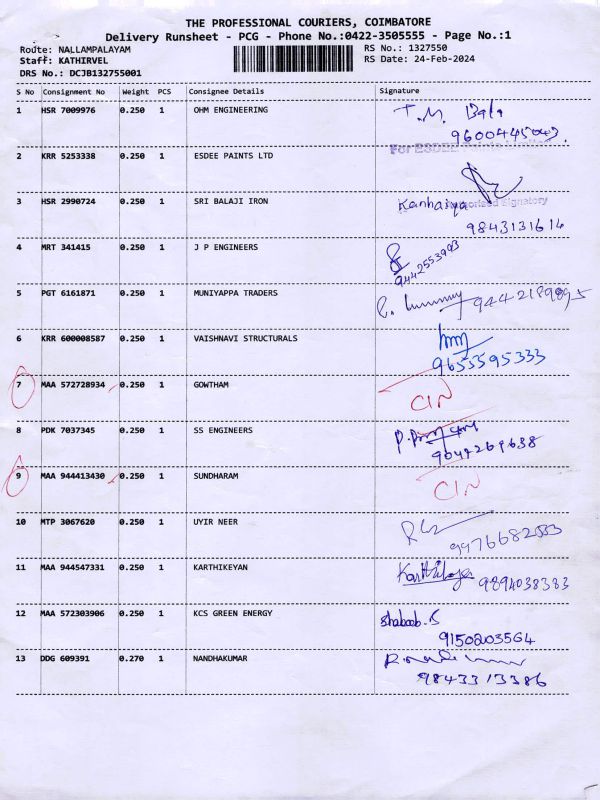 THE PROFESSIONAL COURIERS, COIMBATORE
Delivery Runsheet - PCG - Phone No.:0422-3505555 - Page No.:1
Route: NALLAMPALAYAM RS No.: 1327550
Staff: KATHIRVEL RS Date: 24-Feb-2024
DRS No.: DCJB132755001
S No Consignment No Weight PCS Consignee Details Signature
1 HSR 7009976 0.250 1 OHM ENGINEERING T.M. Bala
9600445043.
For ESDEE
2 KRR 5253338 0.250 1 ESDEE PAINTS LTD
Authorised Signatory
3 HSR 2990724 0.250 1 SRI BALAJI IRON Kanhaiya
9843131614
4 MRT 341415 0.250 1 J P ENGINEERS
9442553993
5 PGT 6161871 0.250 1 MUNIYAPPA TRADERS 9442189895
6 KRR 600008587 0.250 1 VAISHNAVI STRUCTURALS
9655595333
7 MAA 572728934 0.250 1 GOWTHAM CIN
8 PDK 7037345 0.250 1 SS ENGINEERS
9644269638
9 MAA 944413430 0.250 1 SUNDHARAM CIN
10 MTP 3067620 0.250 1 UYIR NEER
9976682553
11 MAA 944547331 0.250 1 KARTHIKEYAN 9894038383
12 MAA 572303906 0.250 1 KCS GREEN ENERGY Shaboob.S
9150203564
13 DDG 609391 0.270 1 NANDHAKUMAR
9843313386